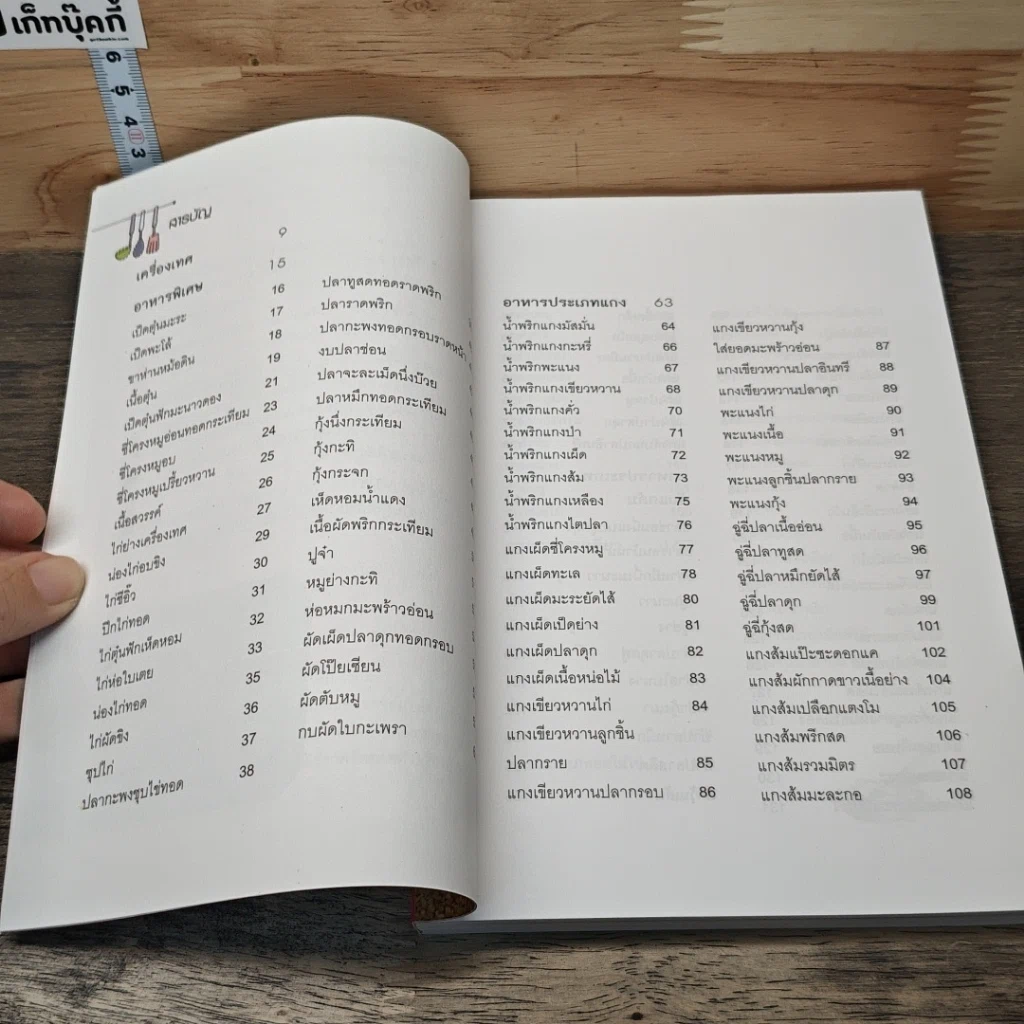 เก็ทบุ๊คกี้
6
5
4
3
สารบัญ
เครื่องเทศ 9
อาหารพิเศษ 15
เป็ดตุ๋นมะระ 16
เป็ดพะโล้ 17
ขาห่านหม้อดิน 18
เนื้อตุ๋น 19
เป็ดตุ๋นฟักมะนาวดอง 21
ซี่โครงหมูอ่อนทอดกระเทียม 23
ซี่โครงหมูอบ 24
ซี่โครงหมูเปรี้ยวหวาน 25
เนื้อสวรรค์ 26
ไก่ย่างเครื่องเทศ 27
น่องไก่อบขิง 29
ไก่ซีอิ๊ว 30
ปีกไก่ทอด 31
ไก่ตุ๋นฟักเห็ดหอม 32
ไก่ห่อใบเตย 33
น่องไก่ทอด 35
ไก่ผัดขิง 36
ซุปไก่ 37
ปลากะพงชุบไข่ทอด 38
ปลาทูสดทอดราดพริก
ปลาราดพริก
ปลากะพงทอดกรอบราดหน้า
งบปลาช่อน
ปลาจะละเม็ดนึ่งบ๊วย
ปลาหมึกทอดกระเทียม
กุ้งนึ่งกระเทียม
กุ้งกะทิ
กุ้งกระจก
เห็ดหอมน้ำแดง
เนื้อผัดพริกกระเทียม
ปูจ๋า
หมูย่างกะทิ
ห่อหมกมะพร้าวอ่อน
ผัดเผ็ดปลาดุกทอดกรอบ
ผัดโป๊ยเซียน
ผัดตับหมู
กบผัดใบกะเพรา
อาหารประเภทแกง 63
น้ำพริกแกงมัสมั่น 64
น้ำพริกแกงกะหรี่ 66
น้ำพริกพะแนง 67
น้ำพริกแกงเขียวหวาน 68
น้ำพริกแกงคั่ว 70
น้ำพริกแกงป่า 71
น้ำพริกแกงเผ็ด 72
น้ำพริกแกงส้ม 73
น้ำพริกแกงเหลือง 75
น้ำพริกแกงไตปลา 76
แกงเผ็ดซี่โครงหมู 77
แกงเผ็ดทะเล 78
แกงเผ็ดมะระยัดไส้ 80
แกงเผ็ดเป็ดย่าง 81
แกงเผ็ดปลาดุก 82
แกงเผ็ดเนื้อหน่อไม้ 83
แกงเขียวหวานไก่ 84
แกงเขียวหวานลูกชิ้น
ปลากราย 85
แกงเขียวหวานปลากรอบ 86
แกงเขียวหวานกุ้ง
ใส่ยอดมะพร้าวอ่อน 87
แกงเขียวหวานปลาอินทรี 88
แกงเขียวหวานปลาดุก 89
พะแนงไก่ 90
พะแนงเนื้อ 91
พะแนงหมู 92
พะแนงลูกชิ้นปลากราย 93
พะแนงกุ้ง 94
ฉู่ฉี่ปลาเนื้ออ่อน 95
ฉู่ฉี่ปลาทูสด 96
ฉู่ฉี่ปลาหมึกยัดไส้ 97
ฉู่ฉี่ปลาดุก 99
ฉู่ฉี่กุ้งสด 101
แกงส้มแป๊ะซะดอกแค 102
แกงส้มผักกาดขาวเนื้อย่าง 104
แกงส้มเปลือกแตงโม 105
แกงส้มพริกสด 106
แกงส้มรวมมิตร 107
แกงส้มมะละกอ 108